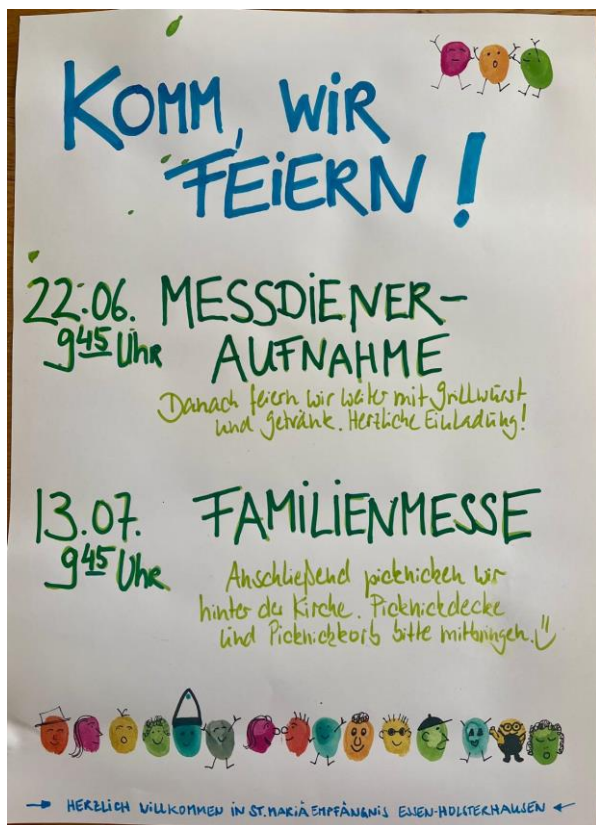 KOMM, WIR
FEIERN!
22.06. MESSDIENER-
9⁴⁵ Uhr AUFNAHME
Danach feiern wir weiter mit Grillwurst
und Getränk. Herzliche Einladung!
13.07. FAMILIENMESSE
9⁴⁵ Uhr
Anschließend picknicken wir
hinter der Kirche. Picknickdecke
und Picknickkorb bitte mitbringen.
→ HERZLICH WILLKOMMEN IN ST. MARIÄ EMPFÄNGNIS ESSEN-HOLSTERHAUSEN ←